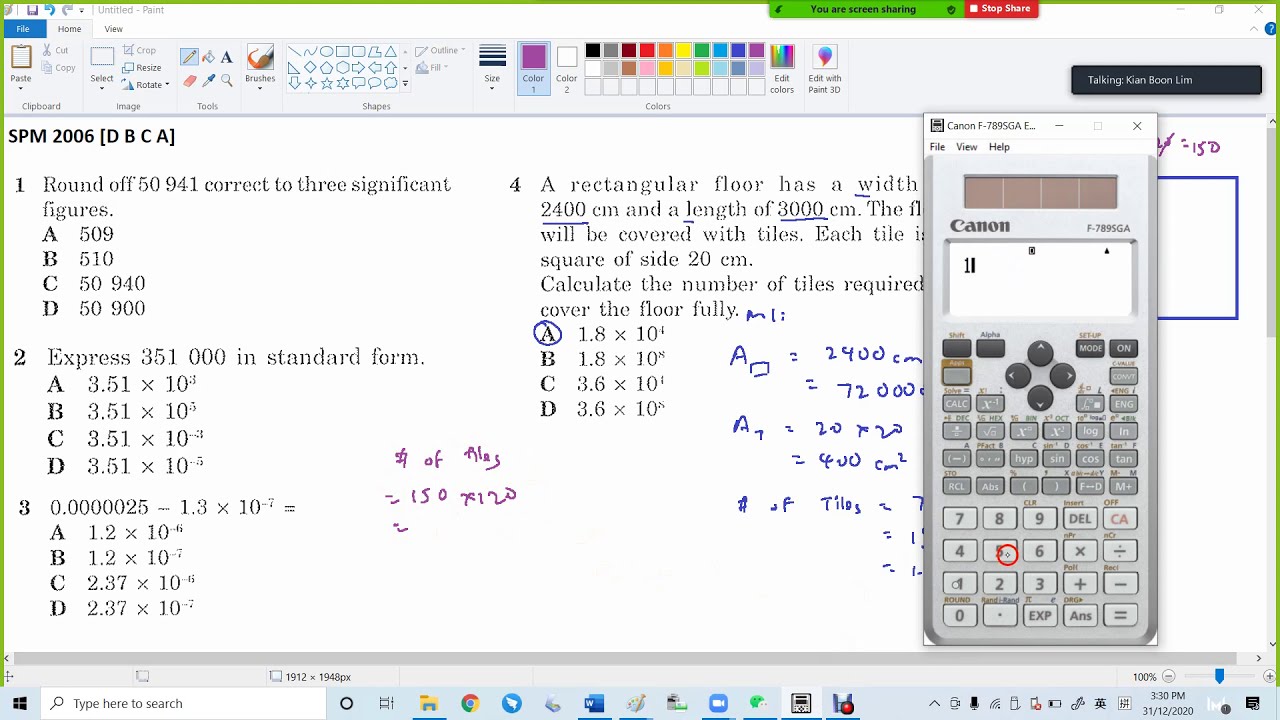 Untitled - Paint
You are screen sharing
Stop Share
File
Home
View
Paste
Cut
Copy
Clipboard
Select
Crop
Resize
Rotate
Image
Tools
Brushes
Shapes
Outline
Fill
Size
Color 1
Color 2
Colors
Edit colors
Edit with Paint 3D
Talking: Kian Boon Lim
SPM 2006 [D B C A]
1 Round off 50 941 correct to three significant
figures.
A 509
B 510
C 50 940
D 50 900
2 Express 351 000 in standard form.
A 3.51 × 10³
B 3.51 × 10⁵
C 3.51 × 10⁻³
D 3.51 × 10⁻⁵
3 0.0000025 – 1.3 × 10⁻⁷ =
A 1.2 × 10⁻⁶
B 1.2 × 10⁻⁷
C 2.37 × 10⁻⁶
D 2.37 × 10⁻⁷
# of tiles
= 150 × 120
=
4 A rectangular floor has a width
2400 cm and a length of 3000 cm. The fl
will be covered with tiles. Each tile is
square of side 20 cm.
Calculate the number of tiles required
cover the floor fully.
A 1.8 × 10⁴
B 1.8 × 10⁸
C 3.6 × 10⁴
D 3.6 × 10⁸
M1:
A□ = 2400 cm
= 720000
A_T = 20 × 20
= 400 cm²
# of Tiles = 7
= 1
= 1.
= 150
Canon F-789SGA E...
File View Help
Canon
F-789SGA
1
Shift Alpha SET-UP MODE ON
Appr. C-VALUE CONVT
Solve = CALC ENG
log ln
hyp sin cos tan
STO RCL Abs ( ) F↔D M+
CLR Insert OFF
7 8 9 DEL CA
nPr nCr
4 5 6 × ÷
Pol( Rec(
1 2 3 + −
ROUND Rand i-Rand π e DRG▸
0 · EXP Ans =
1912 × 1948px
100%
Type here to search
英
拼
3:30 PM
31/12/2020